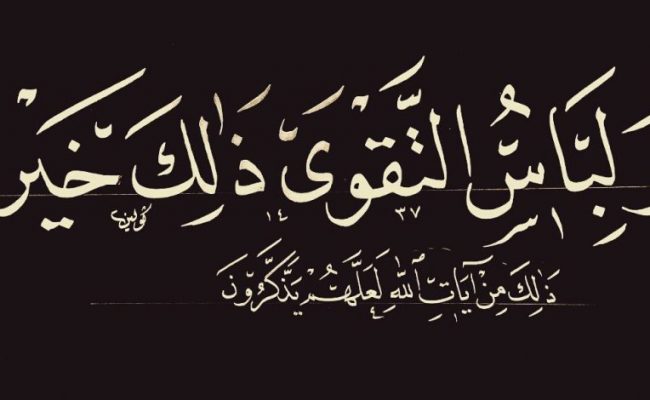 وَلِبَاسُ التَّقْوَىٰ ذَٰلِكَ خَيْر
١٤ ٣٧
ذَٰلِكَ مِنْ آيَاتِ اللَّهِ لَعَلَّهُمْ يَذَّكَّرُونَ